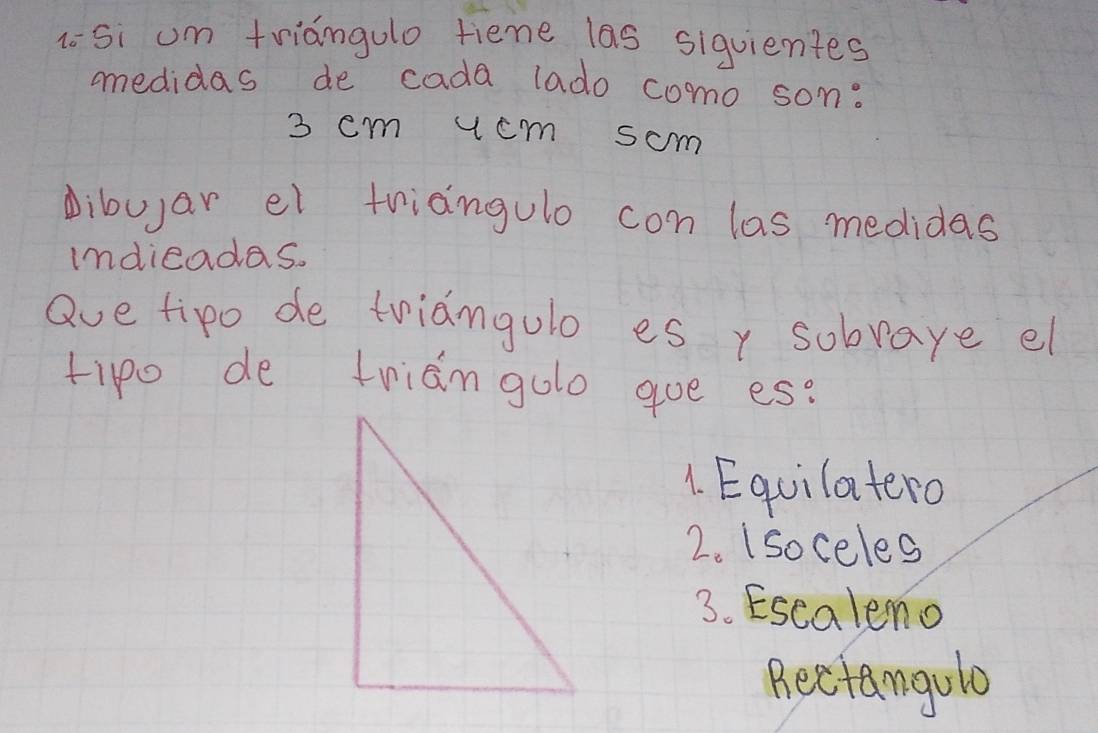 1.- Si un triángulo tiene las siguientes
medidas de cada lado como son:
3 cm 4cm 5cm
Dibujar el triángulo con las medidas
indicadas.
Que tipo de triángulo es y subraye el
tipo de triángulo que es:
1. Equilatero
2. Isoceles
3. Escaleno
Rectangulo